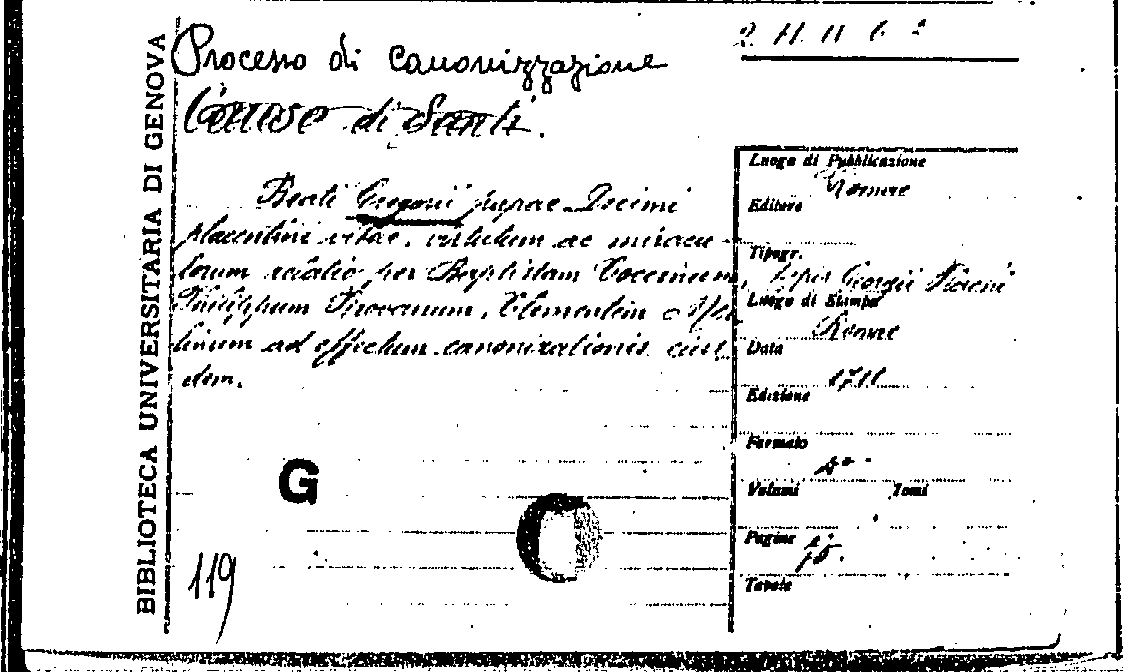 BIBLIOTECA UNIVERSITARIA DI GENOVA
Processo di canonizzazione
Cause di Santi.
Beati Gregorii papae Decimi
placentini vitae, virtutum ac miracu
lorum relatio per Baptistam Coccinum,
Philippum Pirovanum, Clementem Mer
linum ad effectum canonizationis eius
dem.
G
119
Luogo di Pubblicazione
Romae
Editore
Tipogr.
typis Georgii
Luogo di Stampa
Romae
Data
1711
Edizione
Formato
Volumi Tomi
Pagine
Tavole